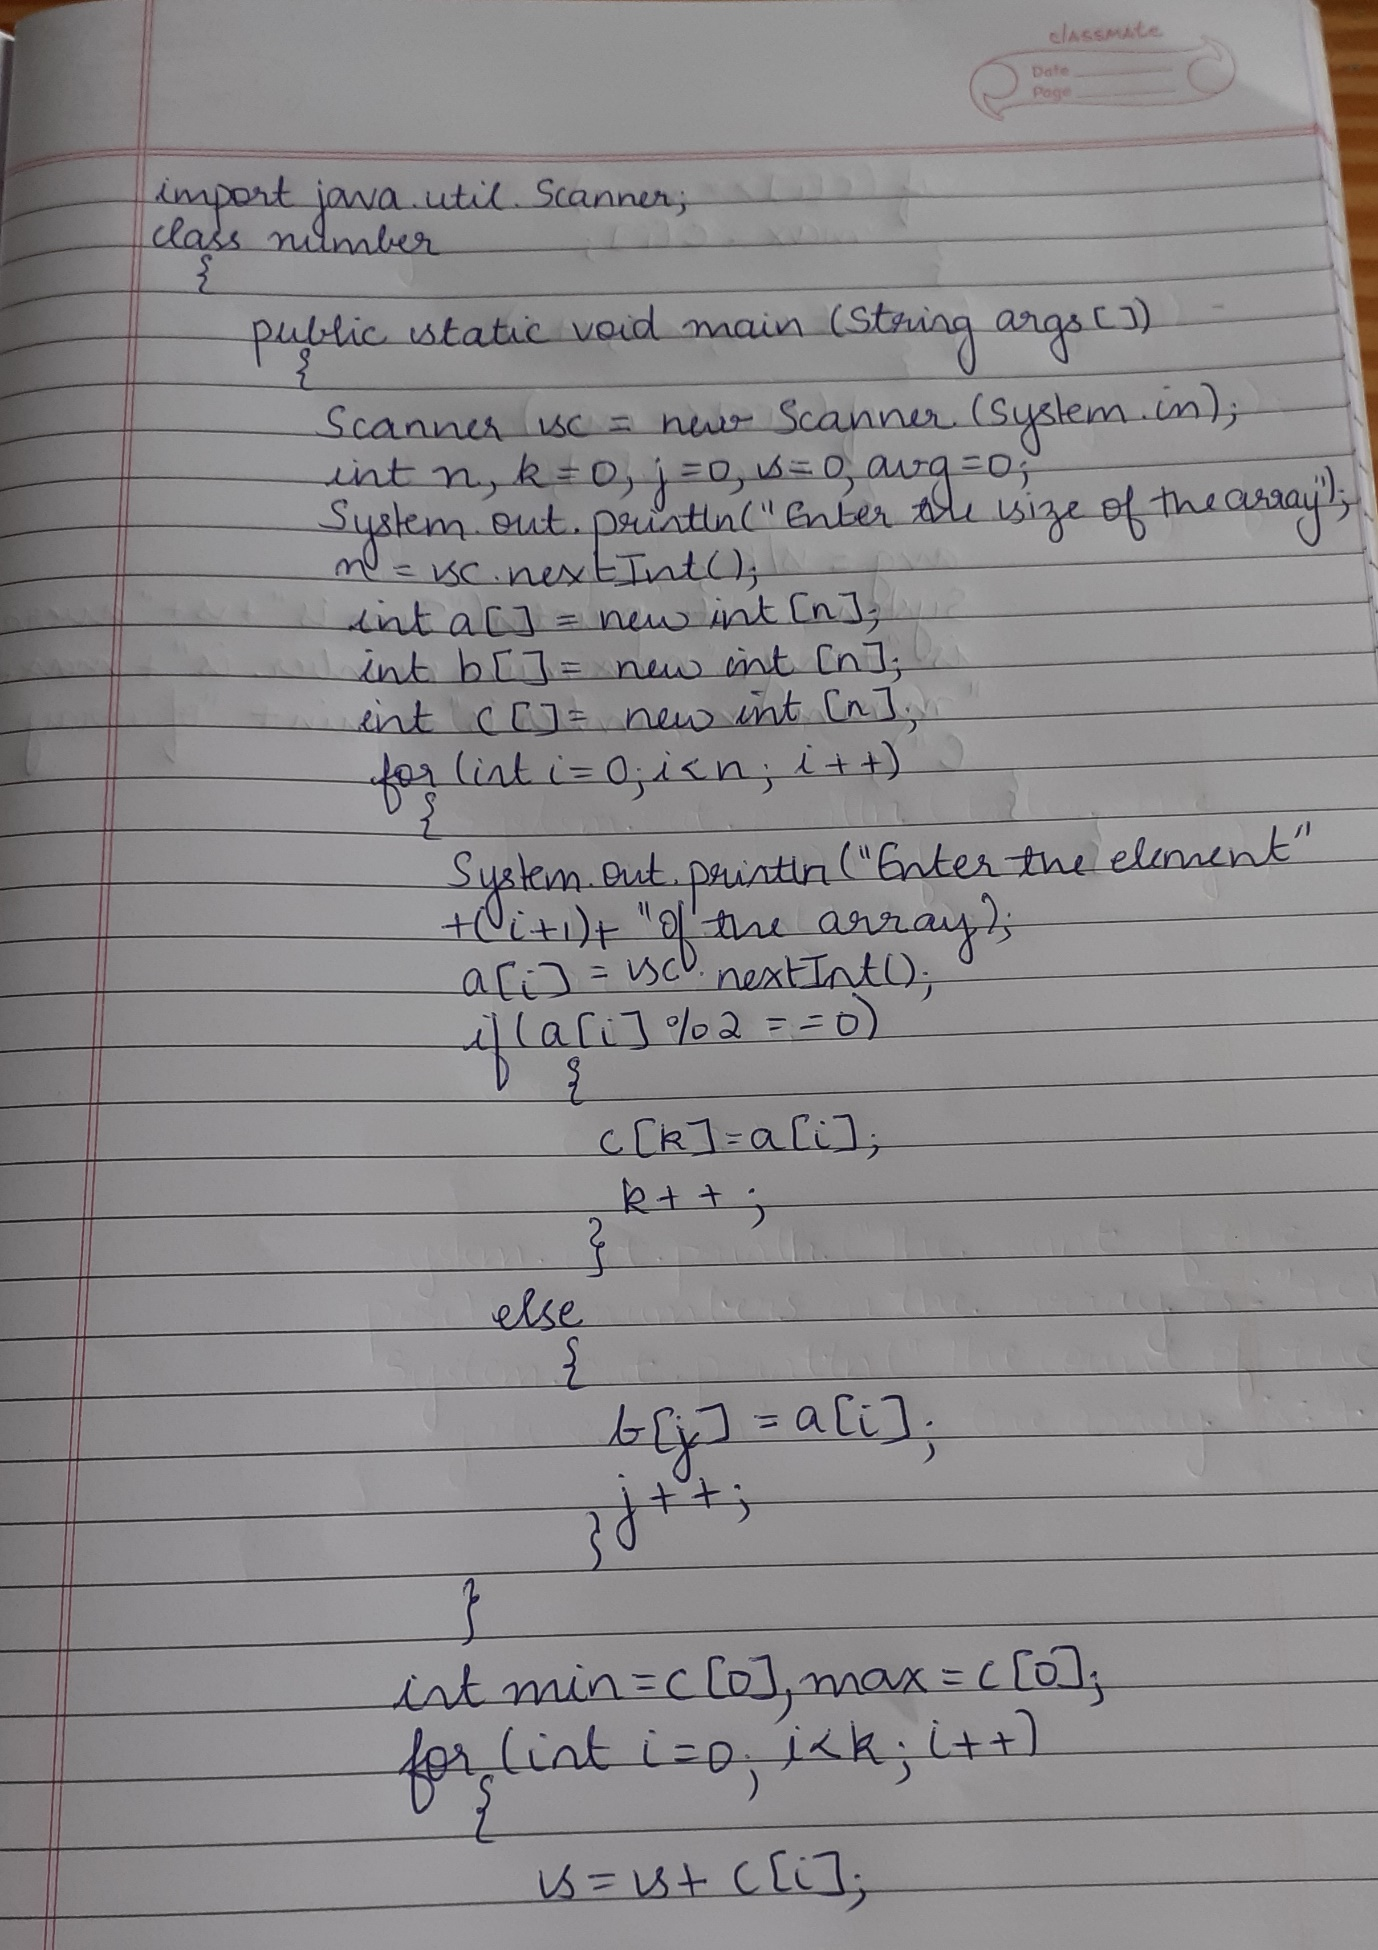 classmate
Date
Page
import java.util.Scanner;
class number
{
public static void main (String args[])
{
Scanner sc = new Scanner (System.in);
int n, k=0, j=0, s=0, avg=0;
System.out.println("Enter the size of the array");
n = sc.nextInt();
int a[] = new int [n];
int b[] = new int [n];
int c[] = new int [n];
for (int i=0; i<n; i++)
{
System.out.println("Enter the element"
+(i+1)+ "of the array);
a[i] = sc.nextInt();
if (a[i] %2 ==0)
{
c[k]=a[i];
k++;
}
else
{
b[j] = a[i];
j++;
}
}
int min=c[0], max=c[0];
for (int i=0; i<k; i++)
{
s=s+ c[i];